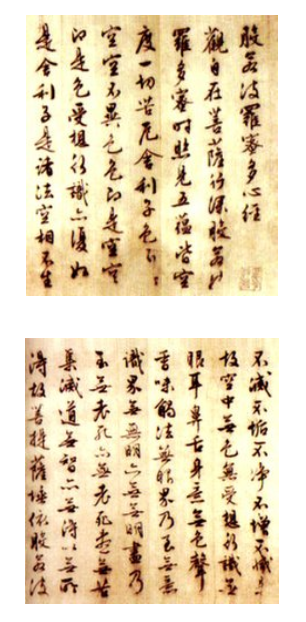 般若波羅蜜多心經
觀自在菩薩行深般若波
羅蜜多時照見五蘊皆空
度一切苦厄舍利子色不異
空空不異色色即是空空
即是色受想行識亦復如
是舍利子是諸法空相不生
不滅不垢不淨不增不減是
故空中無色無受想行識無
眼耳鼻舌身意無色聲
香味觸法無眼界乃至無意
識界無無明亦無無明盡乃
至無老死亦無老死盡無苦
集滅道無智亦無得以無所
得故菩提薩埵依般若波